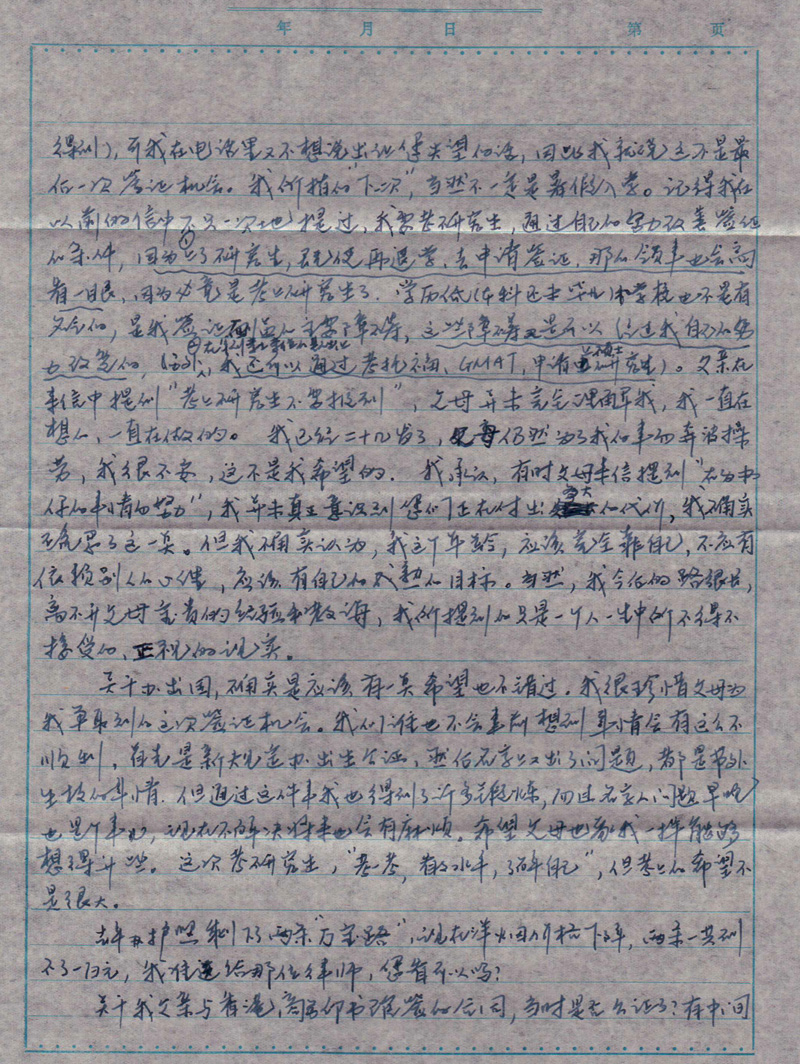 年 月 日 第 页
得到),而我在电话里又不想说出让您失望的话,因此我就说这不是最
后一次签证机会。我所指的"下次",当然不一定是寒假入学。记得我在
以前的信中不只一次地提过,我要考研究生,通过自己的努力改善签证
的条件,因为上了研究生,既使再退学,去申请签证,那么领事也会高
看一眼,因为毕竟是考上研究生了。学历低(本科还未毕业)学校也不是有
名的,是我签证的主要障碍,这些障碍是可以经过我自己的努
力改善的,(另外,我还可以通过考托福、GMAT,申请研究生)。父亲在
来信中提到"考上研究生不要报到",父母并未完全理解我,我一直在
想的,一直在做的。我已经二十几岁了,父母仍然为了我的事而奔波操
劳,我很不安,这不是我希望的。我承认,有时父母来信提到"在为办
你的事情而努力",我并未真正意识到您们正在付出的代价,我确实
忽略了这一点。但我确实认为,我这个年龄,应该完全靠自己,不应有
依赖别人的心理,应该有自己的成熟的目标。当然,我今后的路很长,
离不开父母宝贵的经验和教诲,我所提到的只是一个人一生中所不得不
接受的、正视的现实。
关于办出国,确实是应该有一点希望也不错过。我很珍惜父母为
我争取到的这次签证机会。我们谁也不会事前想到事情会有这么不
顺利,首先是新规定办出生公证,然后名字上又出了问题,都是节外
生枝的事情。但通过这件事我也得到了许多锻炼,而且名字问题早晚
也是个事,现在不解决将来也会有麻烦。希望父母也和我一样能够
想得开些。这次考研究生,"考一考,看水平,了解自己",但考上的希望不
是很大。
去年办护照剩下了两条"万宝路",现在洋烟价格下降,两条一共到
不了一百元,我准备送给那位律师,您看可以吗?
关于我父亲与香港签的合同,当时是怎么公证的?有中间